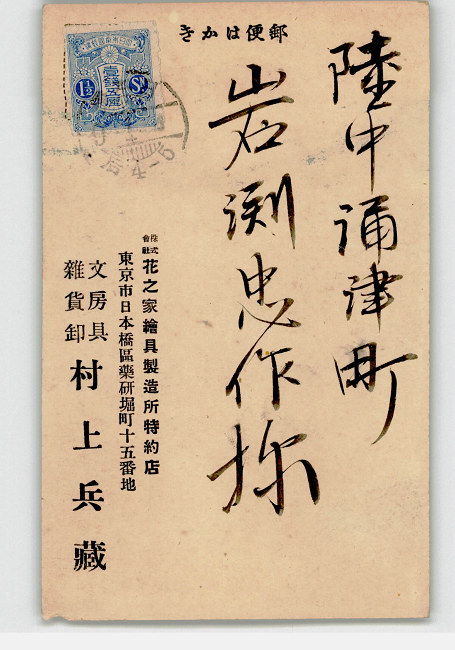 郵便はかき
陸中涌津町
岩渕忠作様
株式會社花之家繪具製造所特約店
東京市日本橋區藥研堀町十五番地
文房具
雜貨卸
村上兵藏
壹錢五厘
1½ Sn